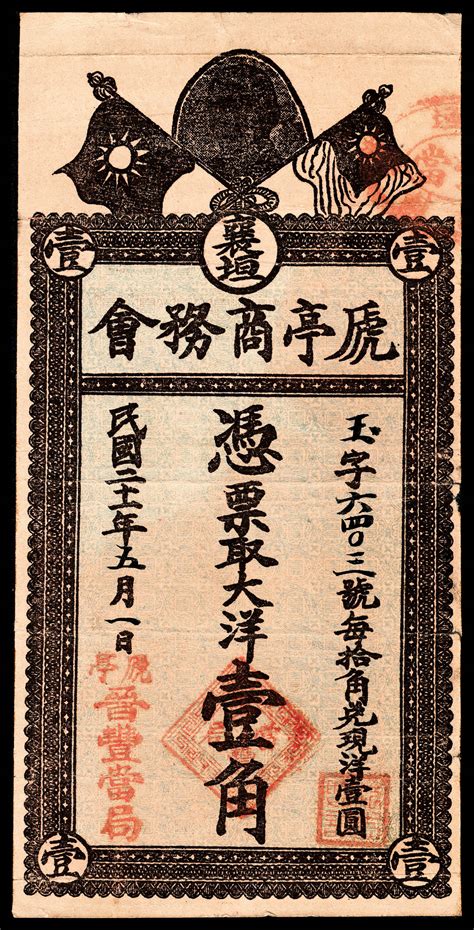 壹
襄垣
壹
虒亭商務會
玉字六四〇三號每拾角兌現洋壹圓
憑票取大洋壹角
民國二十一年五月一日
虒亭
晉豐當局
壹
壹